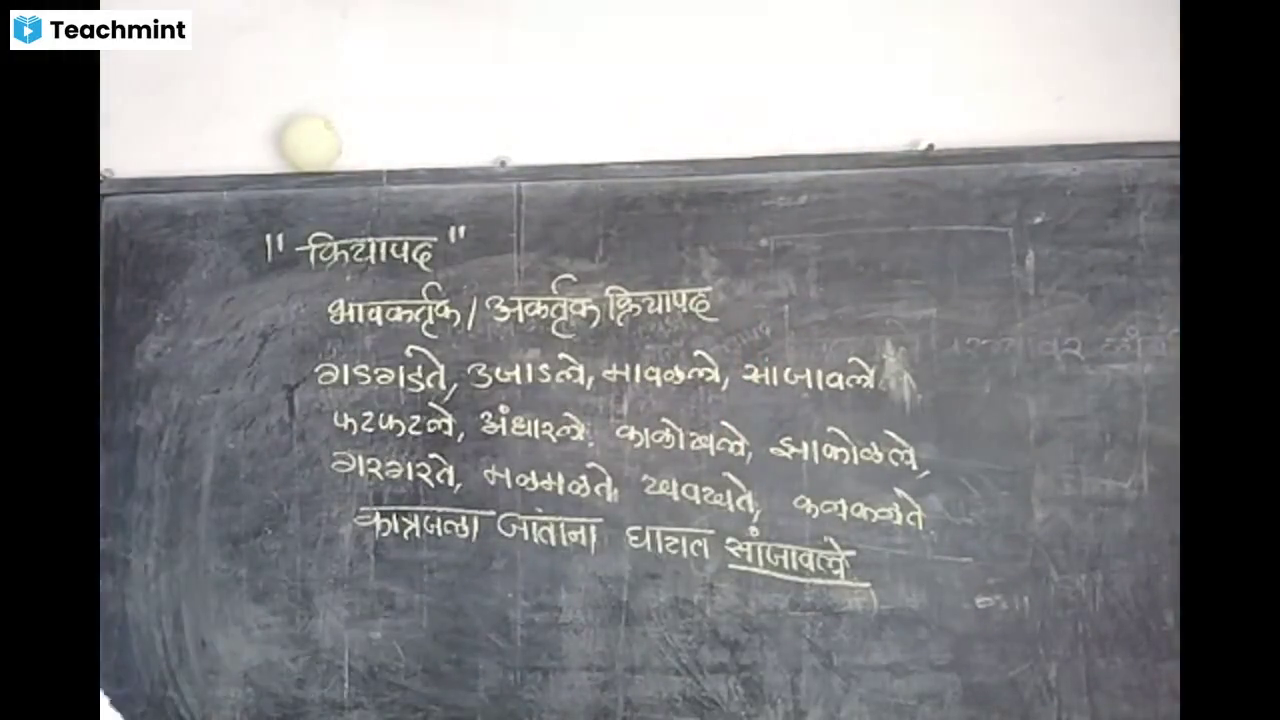 Teachmint
"क्रियापद"
भावकर्तृक / अकर्तृक क्रियापद
गडगडते, उजाडले, मावळले, सांजावले
फटफटले, अंधारले, काळोखले, झाकोळले,
गरगरते, मळमळते, खवखते, कळकळते
कात्रजला जांताना घाटात सांजावले